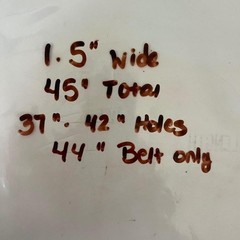 1.5" Wide
45' Total
37". 42" Holes
44" Belt only